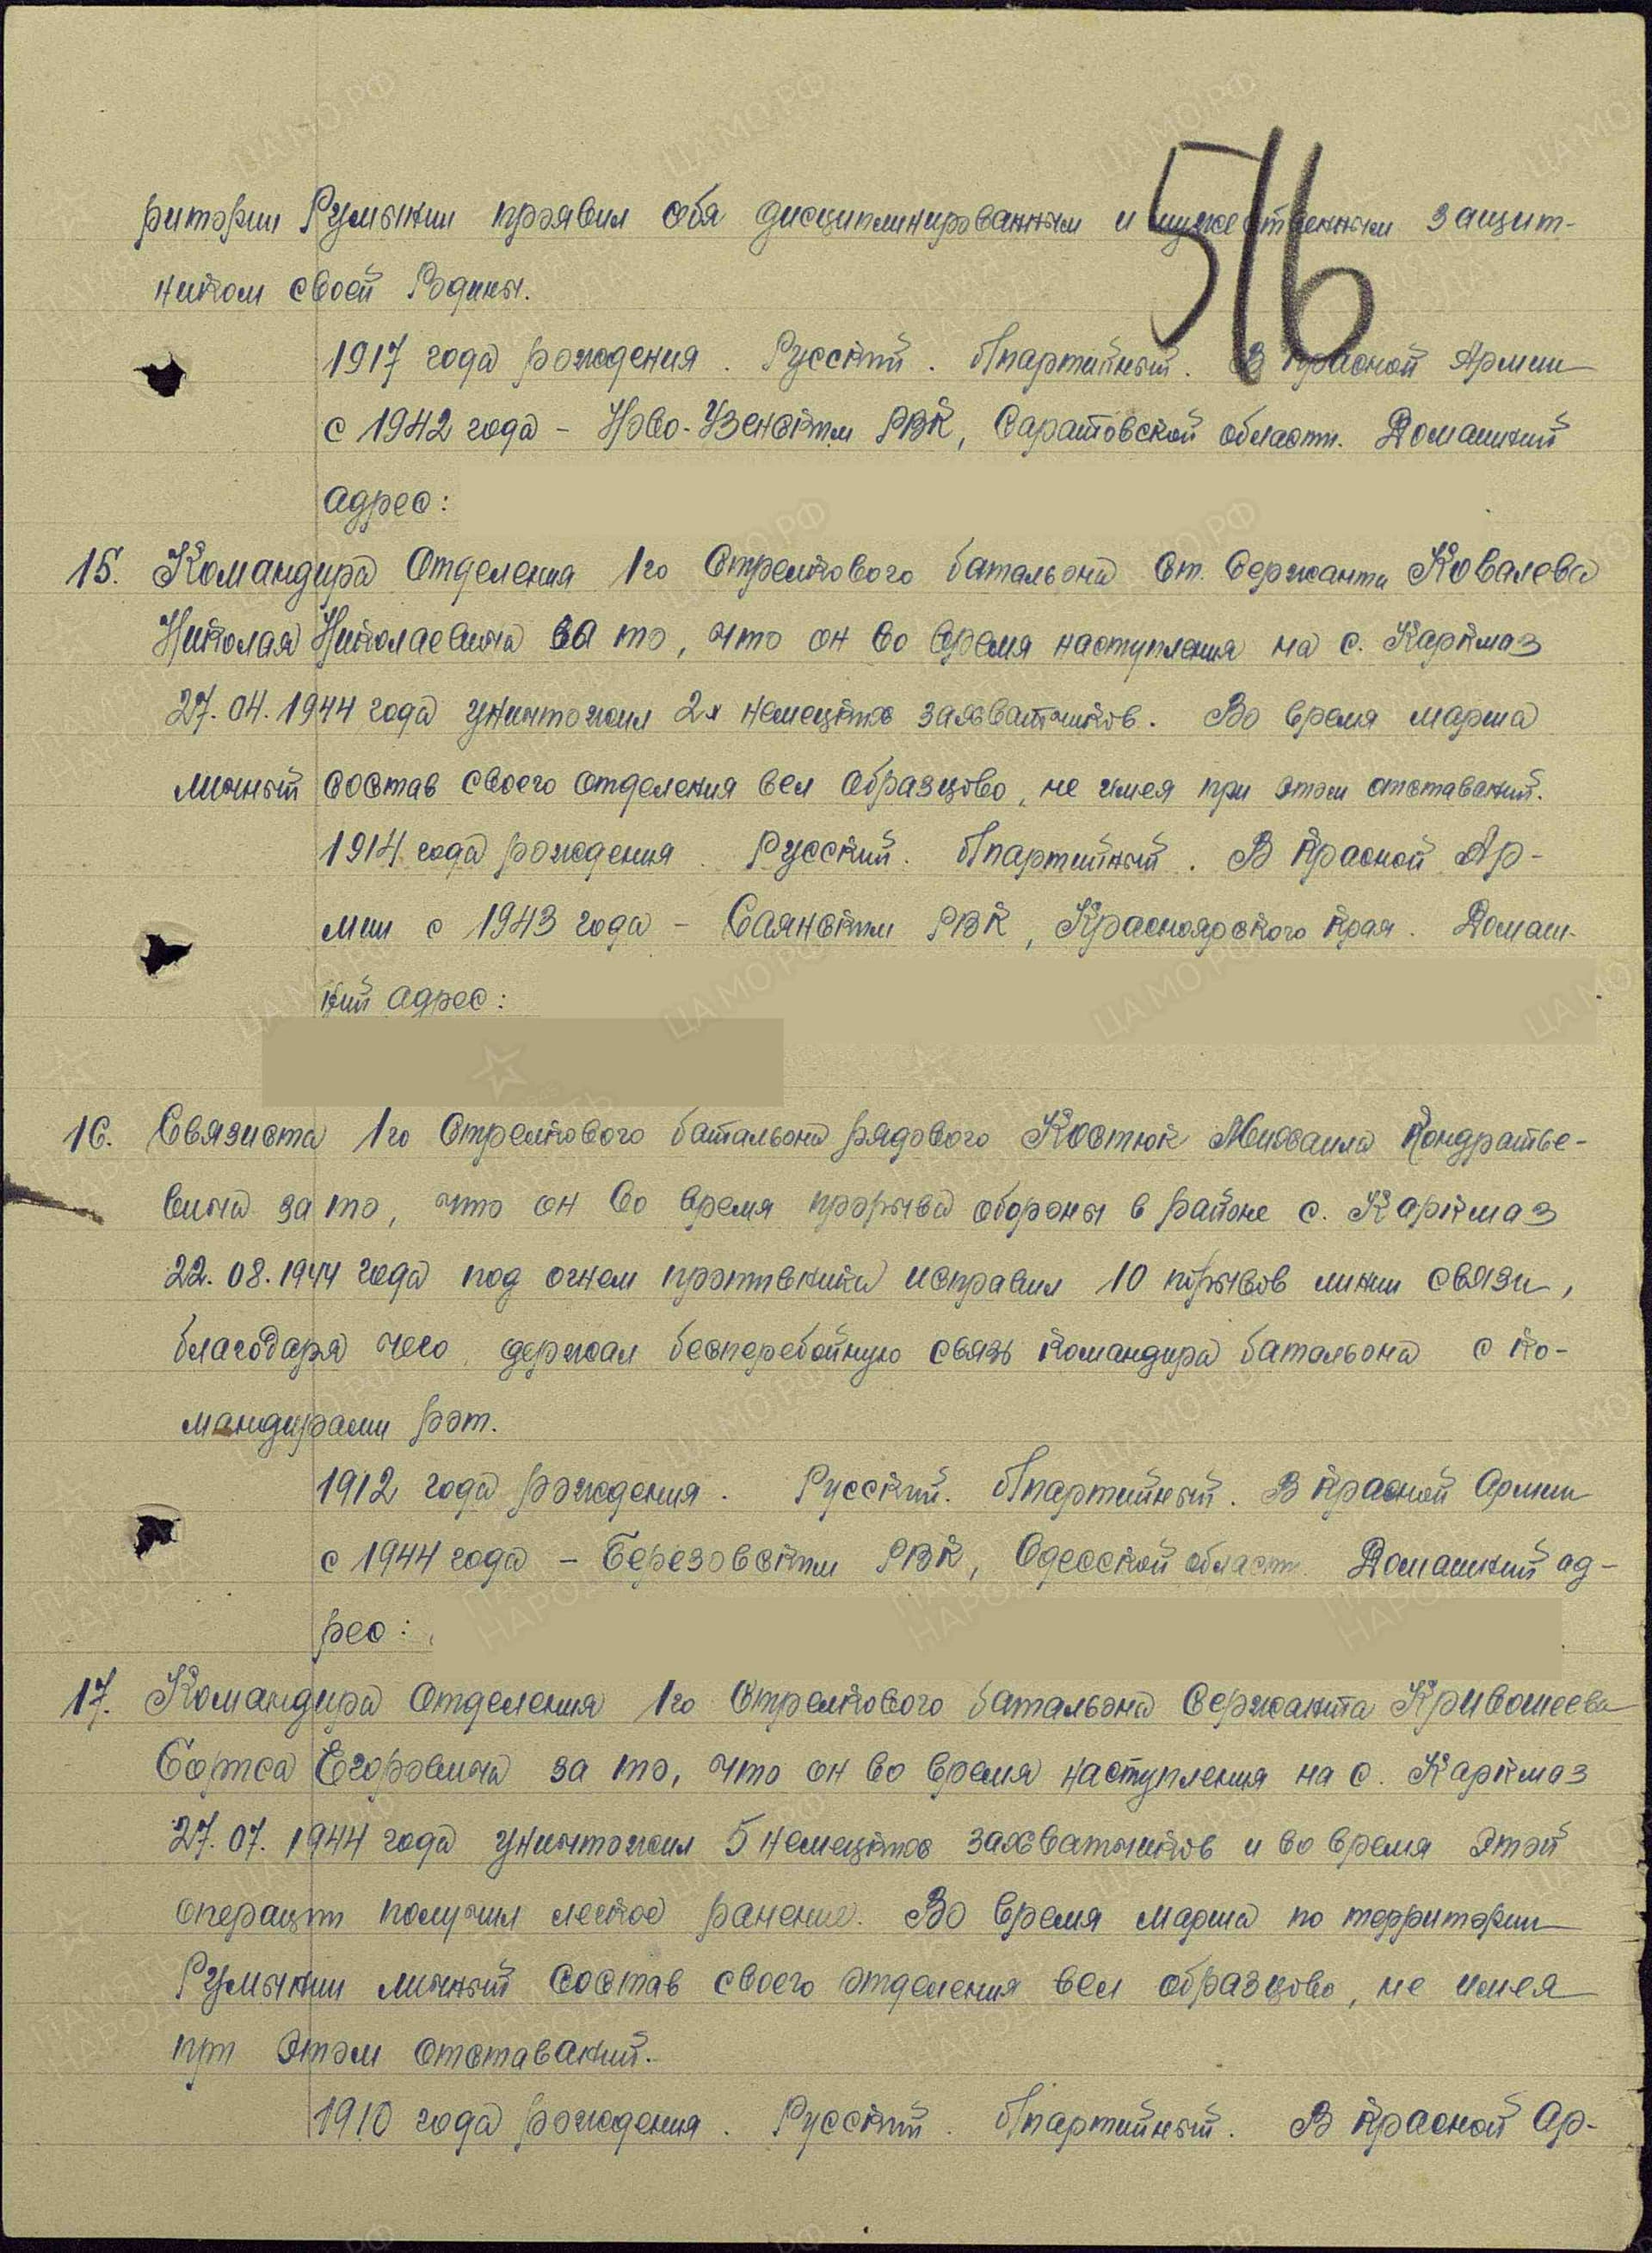 516
ритории Румынии проявил себя дисциплинированным и мужественным защит-
ником своей Родины.
1917 года рождения. Русский. б/партийный. В Красной Армии
с 1942 года – Ново-Узенским РВК, Саратовской области. Домашний
адрес:
15. Командира отделения 1го стрелкового батальона ст. сержанта Ковалева
Николая Николаевича за то, что он во время наступления на с. Каркмаз
27.04.1944 года уничтожил 2х немецких захватчиков. Во время марша
личный состав своего отделения вел образцово, не имея при этом отставаний.
1914 года рождения. Русский. б/партийный. В Красной Ар-
мии с 1943 года – Саянским РВК, Красноярского края. Домаш-
ний адрес:
16. Связиста 1го стрелкового батальона рядового Костюк Михаила Кондратье-
вича за то, что он во время прорыва обороны в районе с. Каркмаз
22.08.1944 года под огнем противника исправил 10 порывов линии связи,
благодаря чего держал бесперебойную связь командира батальона с ко-
мандирами рот.
1912 года рождения. Русский. б/партийный. В Красной Армии
с 1944 года – Березовским РВК, Одесской области. Домашний ад-
рес:
17. Командира отделения 1го стрелкового батальона сержанта Кривошеева
Бориса Егоровича за то, что он во время наступления на с. Каркмаз
27.07.1944 года уничтожил 5 немецких захватчиков и во время этой
операции получил легкое ранение. Во время марша по территории
Румынии личный состав своего отделения вел образцово, не имея
при этом отставаний.
1910 года рождения. Русский. б/партийный. В Красной Ар-